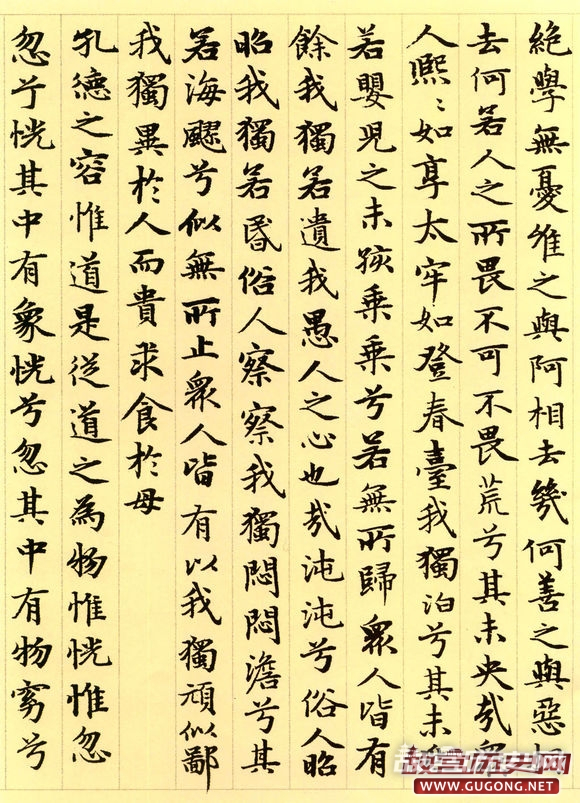 絶學無憂維之與阿相去幾何善之與惡相
去何若人之所畏不可不畏荒兮其未央哉眾
人熙〻如享太牢如登春臺我獨泊兮其未
若嬰兒之未孩乘乘兮若無所歸眾人皆有
餘我獨若遺我愚人之心也哉沌沌兮俗人昭
昭我獨若昬俗人察察我獨悶悶澹兮其
若海飂兮似無所止眾人皆有以我獨頑似鄙
我獨異於人而貴求食於母
孔德之容惟道是從道之為物惟恍惟忽
忽兮恍其中有象恍兮忽其中有物窈兮
故宫历史网
WWW.GUGONG.NET